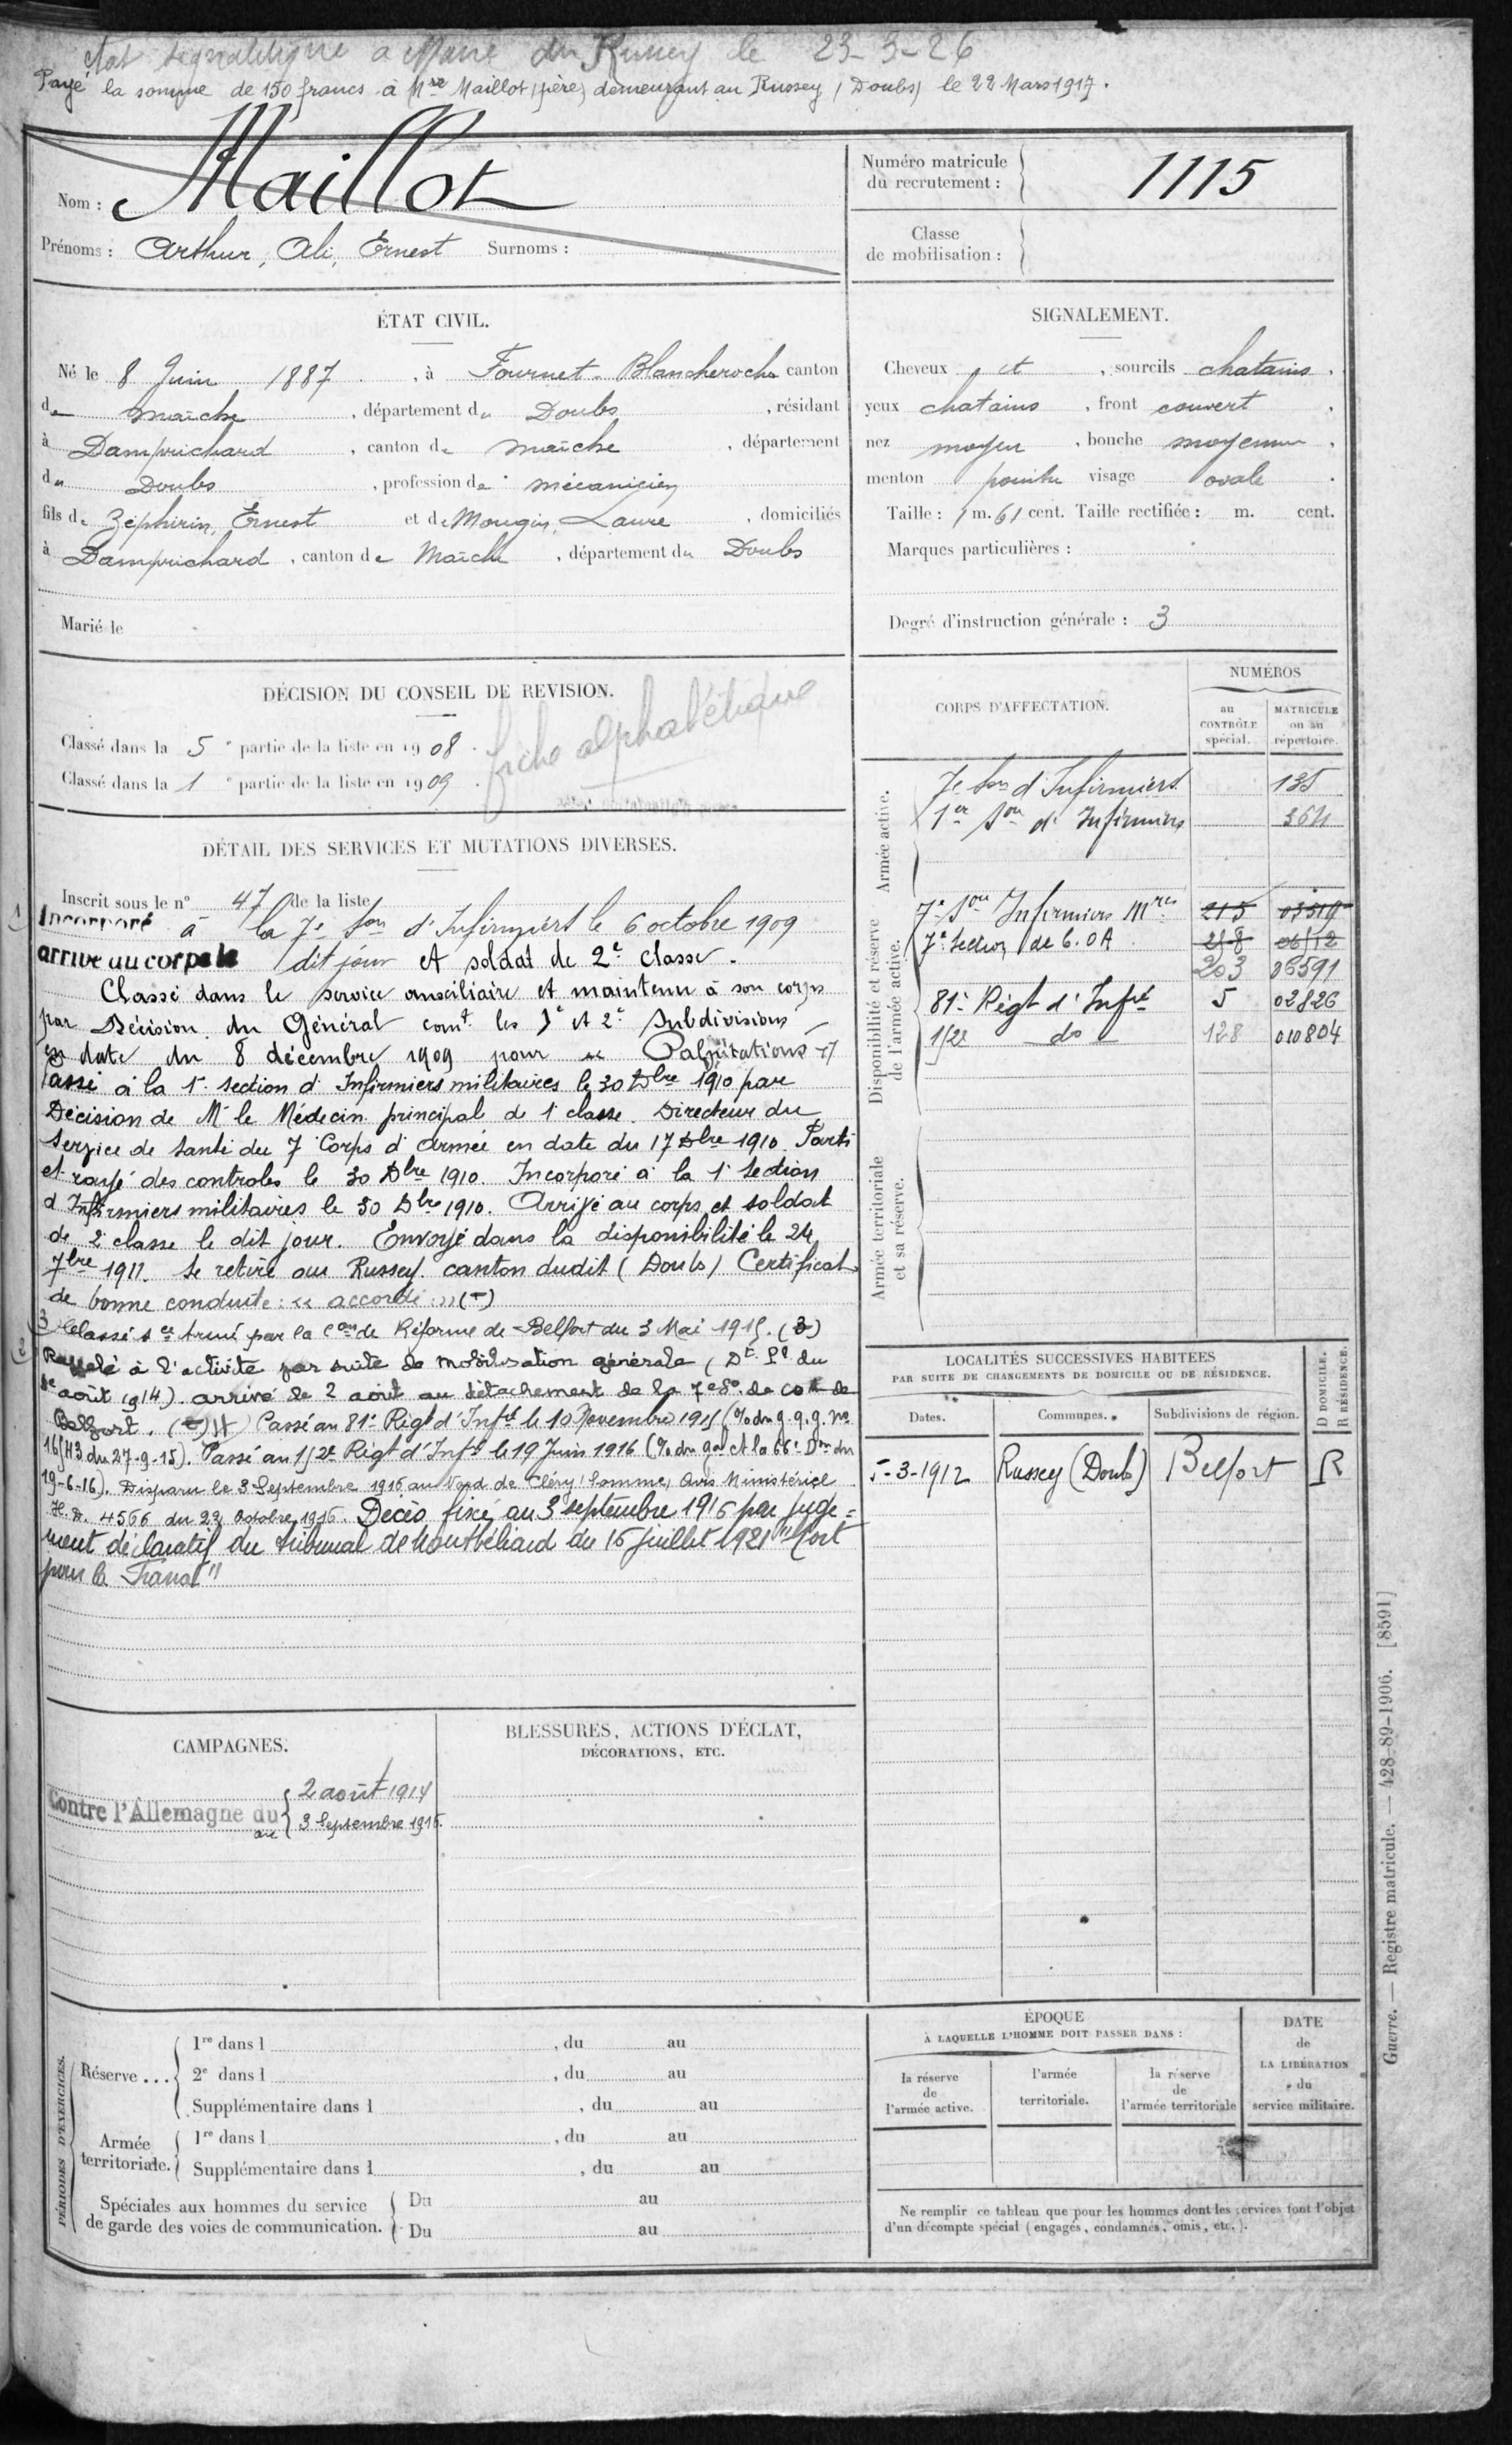 Etat signalétique a Maire du Russey le 23-3-26
Payé la somme de 150 francs à Mr Maillot (père) demeurant au Russey (Doubs) le 22 Mars 1917.
Nom : Maillot
Prénoms : Arthur, Ali, Ernest Surnoms :
Numéro matricule du recrutement : 1115
Classe de mobilisation :
ÉTAT CIVIL.
Né le 8 Juin 1887, à Fournet-Blancheroche canton
de Maîche, département du Doubs, résidant
à Damprichard, canton de Maîche, département
du Doubs, profession de mécanicien
fils de Zéphirin, Ernest et de Mougin, Laure, domiciliés
à Damprichard, canton de Maîche, département du Doubs
Marié le
SIGNALEMENT.
Cheveux et, sourcils chatains,
yeux chatains, front couvert,
nez moyen, bouche moyenne,
menton pointu visage ovale.
Taille : 1 m. 61 cent. Taille rectifiée : m. cent.
Marques particulières :
Degré d'instruction générale : 3
DÉCISION DU CONSEIL DE REVISION.
Classé dans la 5e partie de la liste en 1908.
Classé dans la 1e partie de la liste en 1909.
fiche alphabétique
DÉTAIL DES SERVICES ET MUTATIONS DIVERSES.
Inscrit sous le n° 47 de la liste
Incorporé à la 7e Son d'Infirmiers le 6 octobre 1909
arrivé au corps le dit jour et soldat de 2e classe.
Classé dans le service auxiliaire et maintenu à son corps
par Décision du Général comt les 1e et 2e Subdivisions
en date du 8 décembre 1909 pour "Palpitations"
Passé à la 1e Section d'Infirmiers militaires le 30 Xbre 1910 par
Décision de Mr le Médecin principal de 1e classe. Directeur du
Service de Santé du 7e Corps d'Armée en date du 17 Xbre 1910. Parti
et rayé des controles le 30 Xbre 1910. Incorporé à la 1e Section
d'Infirmiers militaires le 30 Xbre 1910. Arrivé au corps et soldat
de 2e classe le dit jour. Envoyé dans la disponibilité le 24
7bre 1911. Se retire au Russey canton dudit (Doubs) Certificat
de bonne conduite : "accordé" (-)
3) Classé sce Armé par la Con de Réforme de Belfort du 3 Mai 1915. (3)
Rappelé à l'activité par suite de mobilisation générale (Dt Pl du
1e août 1914). arrivé le 2 août au détachement de la 7e So. de COA de
Belfort. Passé au 81e Régt d'Infie le 10 Novembre 1915 (% du g.q.g. no
16143 du 27-9-15). Passé au 152e Régt d'Infie le 19 Juin 1916 (% du gal Ct la 66e Don du
19-6-16). Disparu le 3 Septembre 1916 au Nord de Cléry (Somme) Avis Ministériel
4566 du 22 Octobre 1916. Décès fixé au 3 septembre 1916 par juge=
ment déclaratif du tribunal de Montbéliard du 16 juillet 1921 "Mort
pour la France"
CORPS D'AFFECTATION.
NUMÉROS
au CONTRÔLE spécial.
MATRICULE ou au répertoire.
Armée active.
7e Son d'Infirmiers 135
1er Son d'Infirmiers 3641
Disponibilité et réserve de l'armée active.
7e Son Infirmiers Mres 215 03519
7e Section de C.O.A 258 06512
203 06591
81e Régt d'Infie 5 02826
152 do 128 010804
Armée territoriale et sa réserve.
LOCALITÉS SUCCESSIVES HABITÉES
PAR SUITE DE CHANGEMENTS DE DOMICILE OU DE RÉSIDENCE.
Dates. Communes. Subdivisions de région. D DOMICILE. R RÉSIDENCE.
5-3-1912 Russey (Doubs) Belfort R
CAMPAGNES.
Contre l'Allemagne du 2 août 1914
au 3 Septembre 1916.
BLESSURES, ACTIONS D'ÉCLAT,
DÉCORATIONS, ETC.
PÉRIODES D'EXERCICES.
Réserve ...
1re dans l , du au
2e dans l , du au
Supplémentaire dans l , du au
Armée territoriale.
1re dans l , du au
Supplémentaire dans l , du au
Spéciales aux hommes du service
de garde des voies de communication.
Du au
Du au
ÉPOQUE
À LAQUELLE L'HOMME DOIT PASSER DANS :
la réserve de l'armée active.
l'armée territoriale.
la réserve de l'armée territoriale
DATE de LA LIBÉRATION du service militaire.
Ne remplir ce tableau que pour les hommes dont les services font l'objet
d'un décompte spécial (engagés, condamnés, omis, etc.).
Guerre. — Registre matricule. — 428-89-1906. [8591]